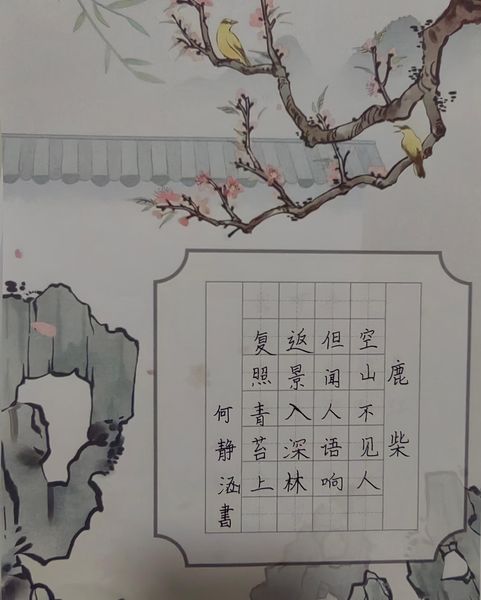 鹿柴
空山不见人
但闻人语响
返景入深林
复照青苔上
何静涵書